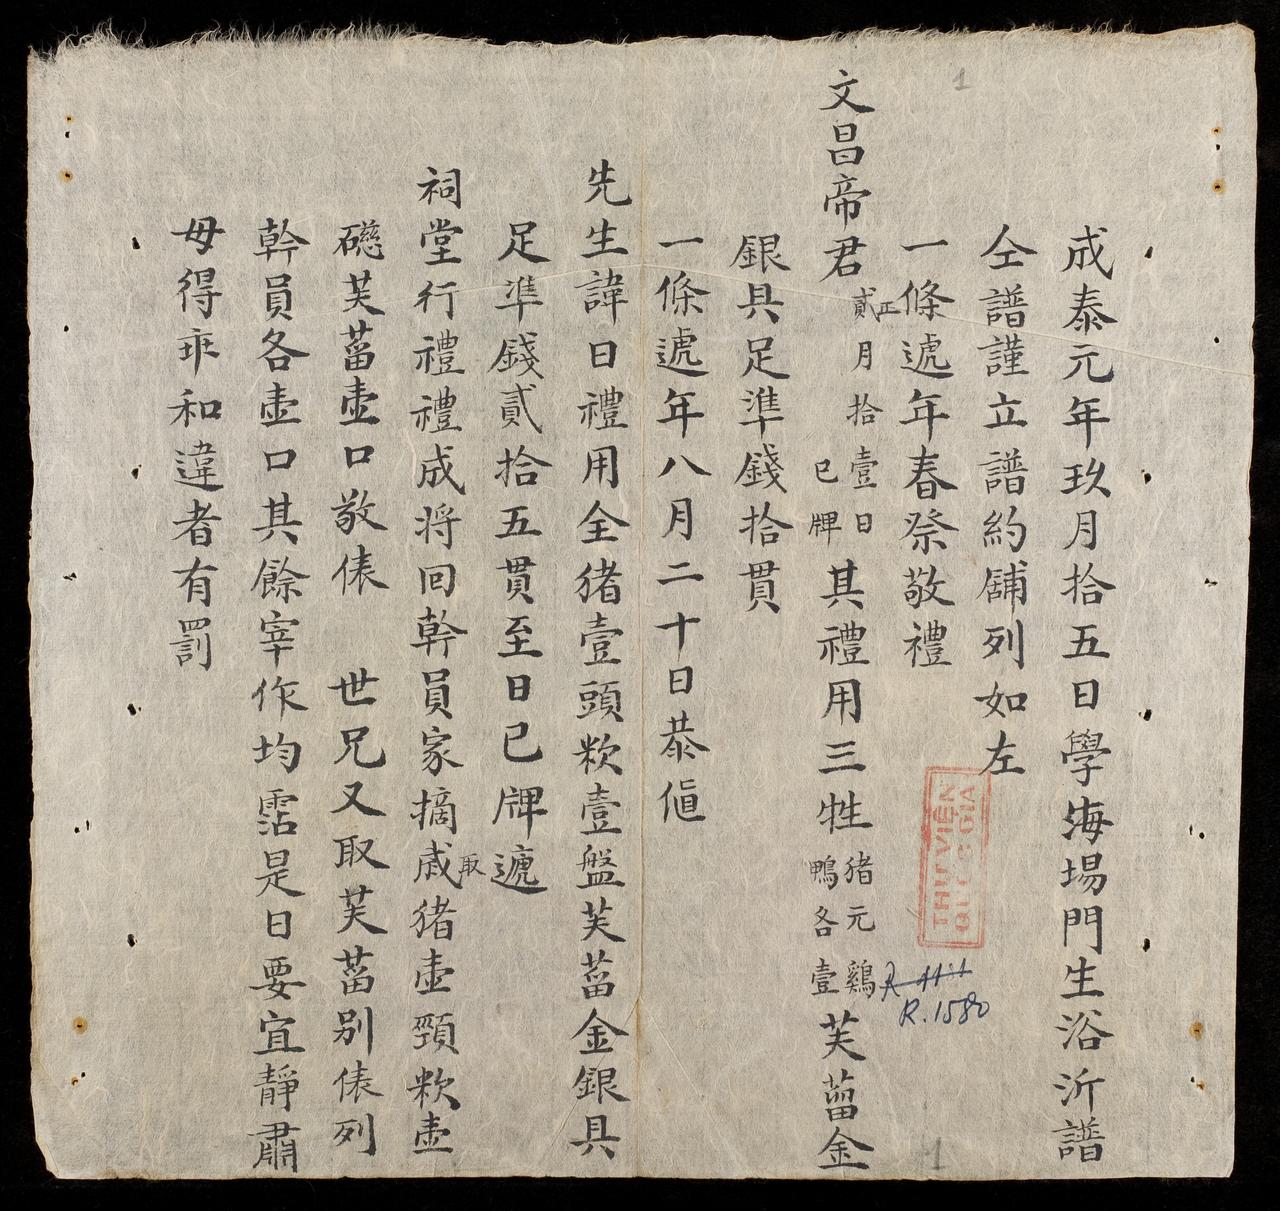 成泰元年玖月拾五日學海場門生浴沂譜
仝譜謹立譜約舖列如左
一條遞年春祭敬禮
文昌帝君正貳月拾壹日已牌其禮用三牲猪元鷄鴨各壹芙蒥金
銀具足準錢拾貫
一條遞年八月二十日恭値
先生諱日禮用全猪壹頭歀壹盤芙蒥金銀具
足準錢貳拾五貫至日已牌遞
祠堂行禮禮成將回幹員家摘取戚猪壺頸歀壺
礠芙蒥壺口敬俵 世兄又取芙蒥別俵列
幹員各壺口其餘宰作均霑是日要宜靜肅
毋得乖和違者有罰
1
THƯ VIỆN
QUỐC GIA
R.1580
1